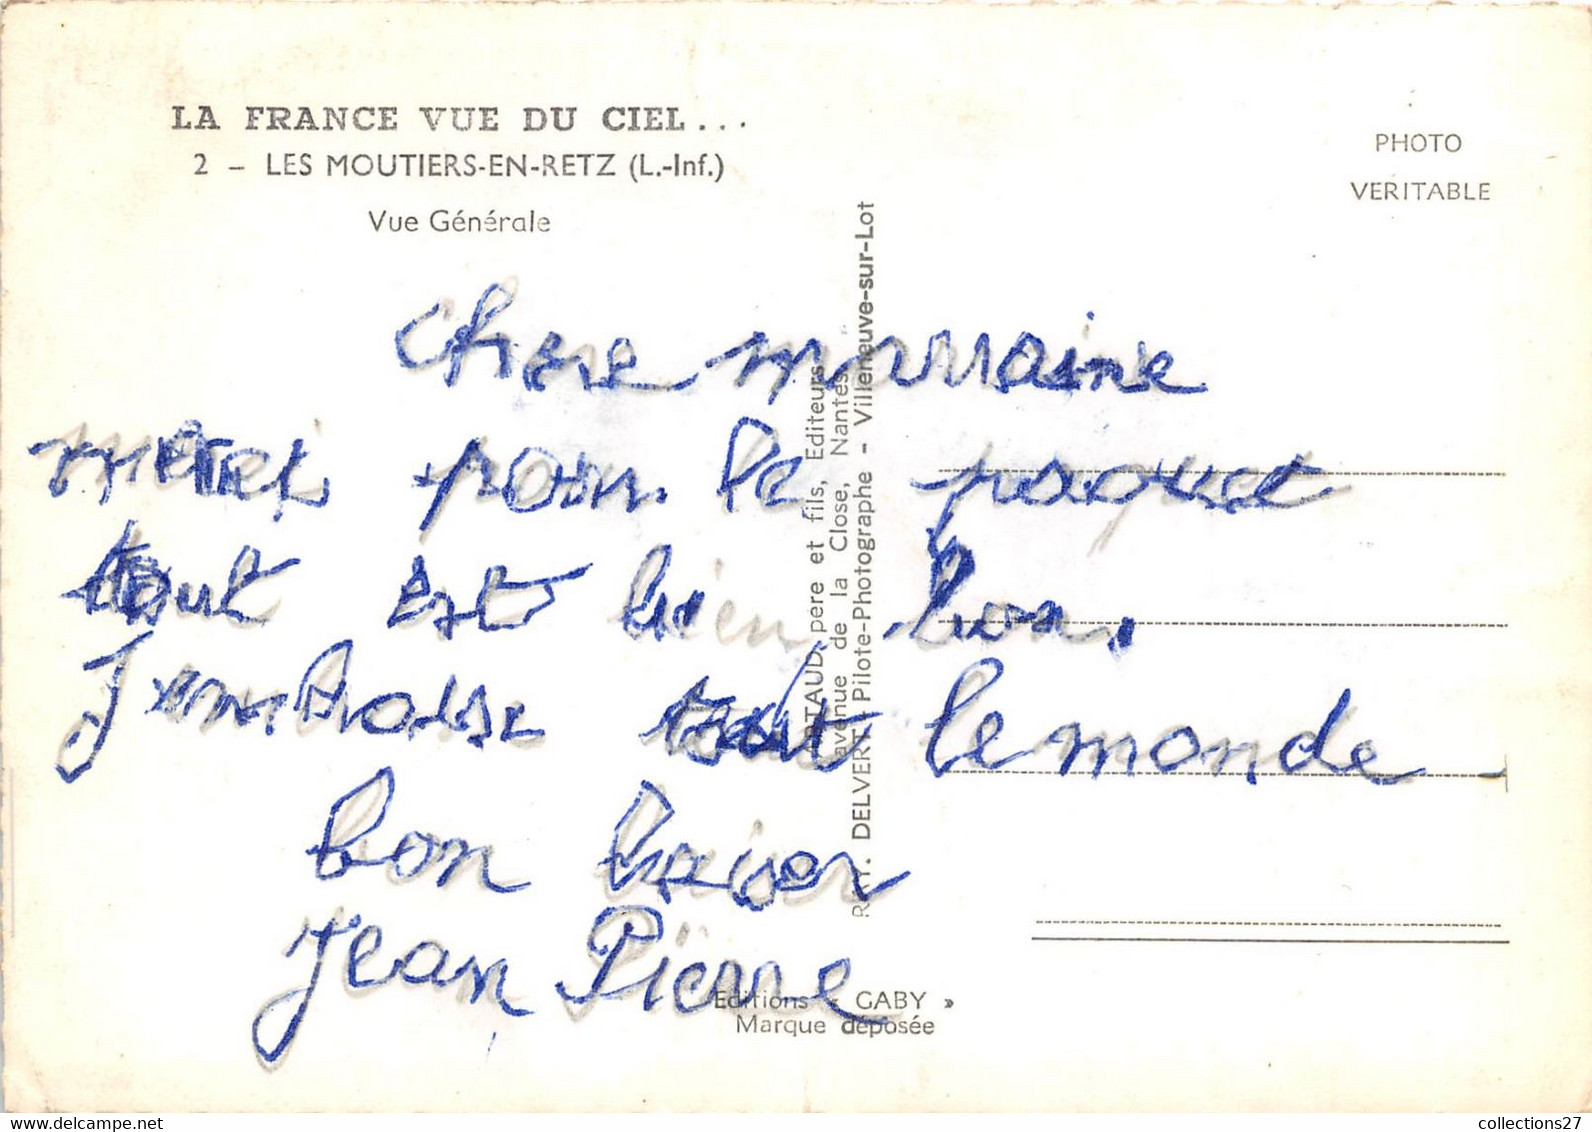 LA FRANCE VUE DU CIEL...
2 - LES MOUTIERS-EN-RETZ (L.-Inf.)
Vue Générale
PHOTO
VERITABLE
Chere marraine
merci pour le paquet
tout est bien bon.
J'embrasse tout le monde
bon baiser
Jean Pierre
ARTAUD père et fils, Editeurs
avenue de la Close, Nantes
DELVERT Pilote-Photographe - Villeneuve-sur-Lot
Editions « GABY »
Marque déposée
collections27